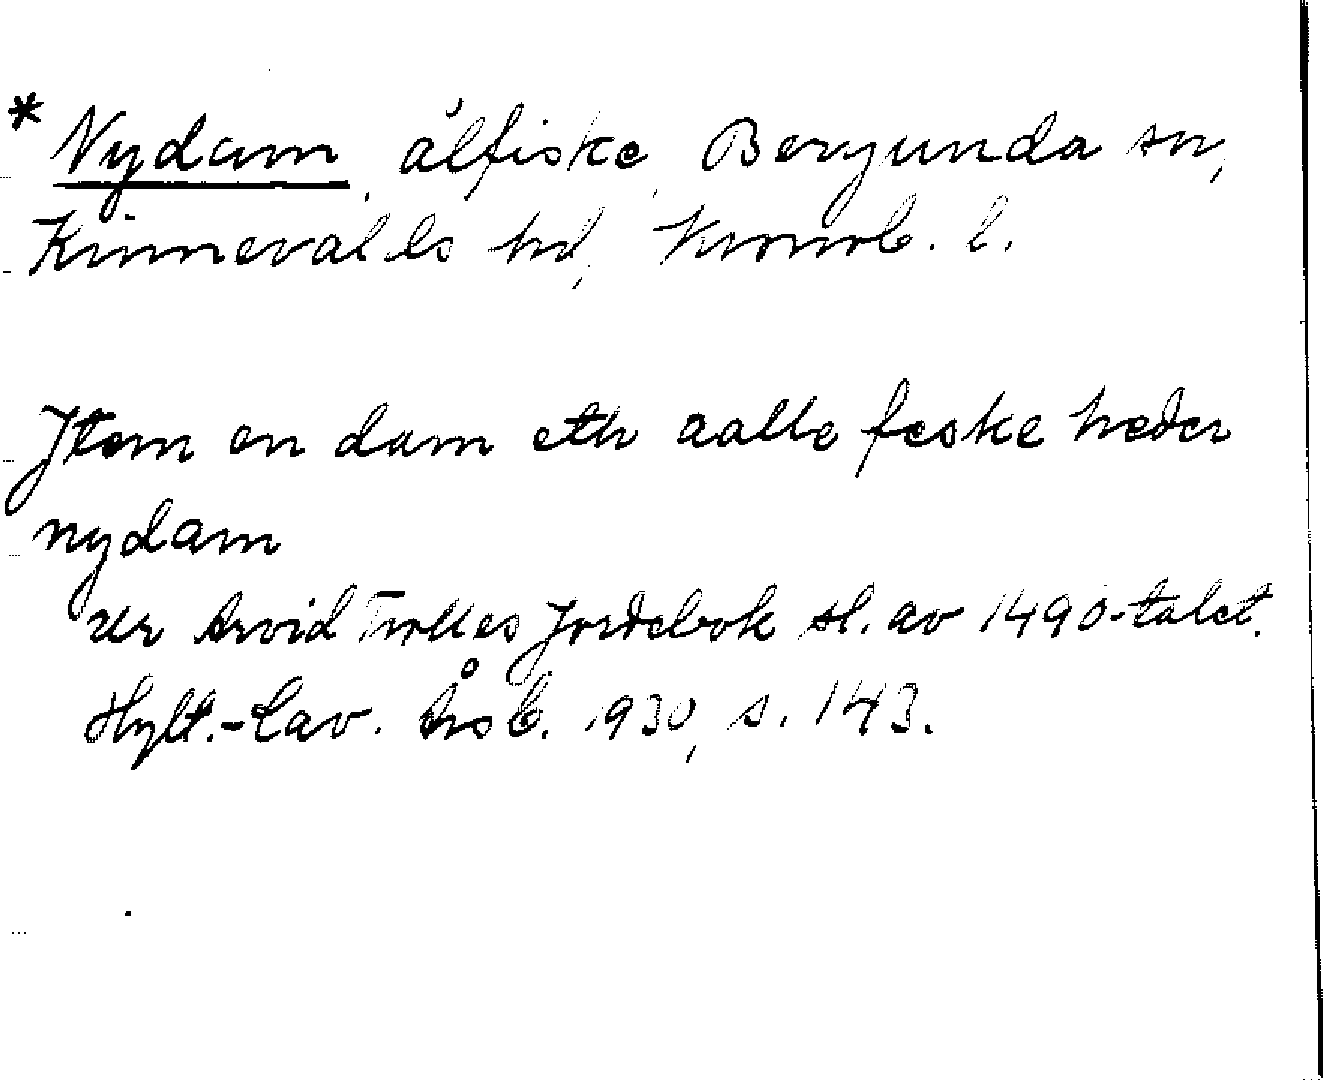 * Nydam, ålfiske, Bergunda sn,
Kinnevalds hd, Kronob. l.
Jtem en dam eth aalle feske heder
nydam
ur Arvid Trolles Jordebok sl. av 1490-talet.
Hylt.-Cav. Årsb. 1930, s. 143.